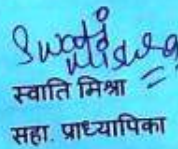 Swati
Mishra
स्वाति मिश्रा
सहा. प्राध्यापिका